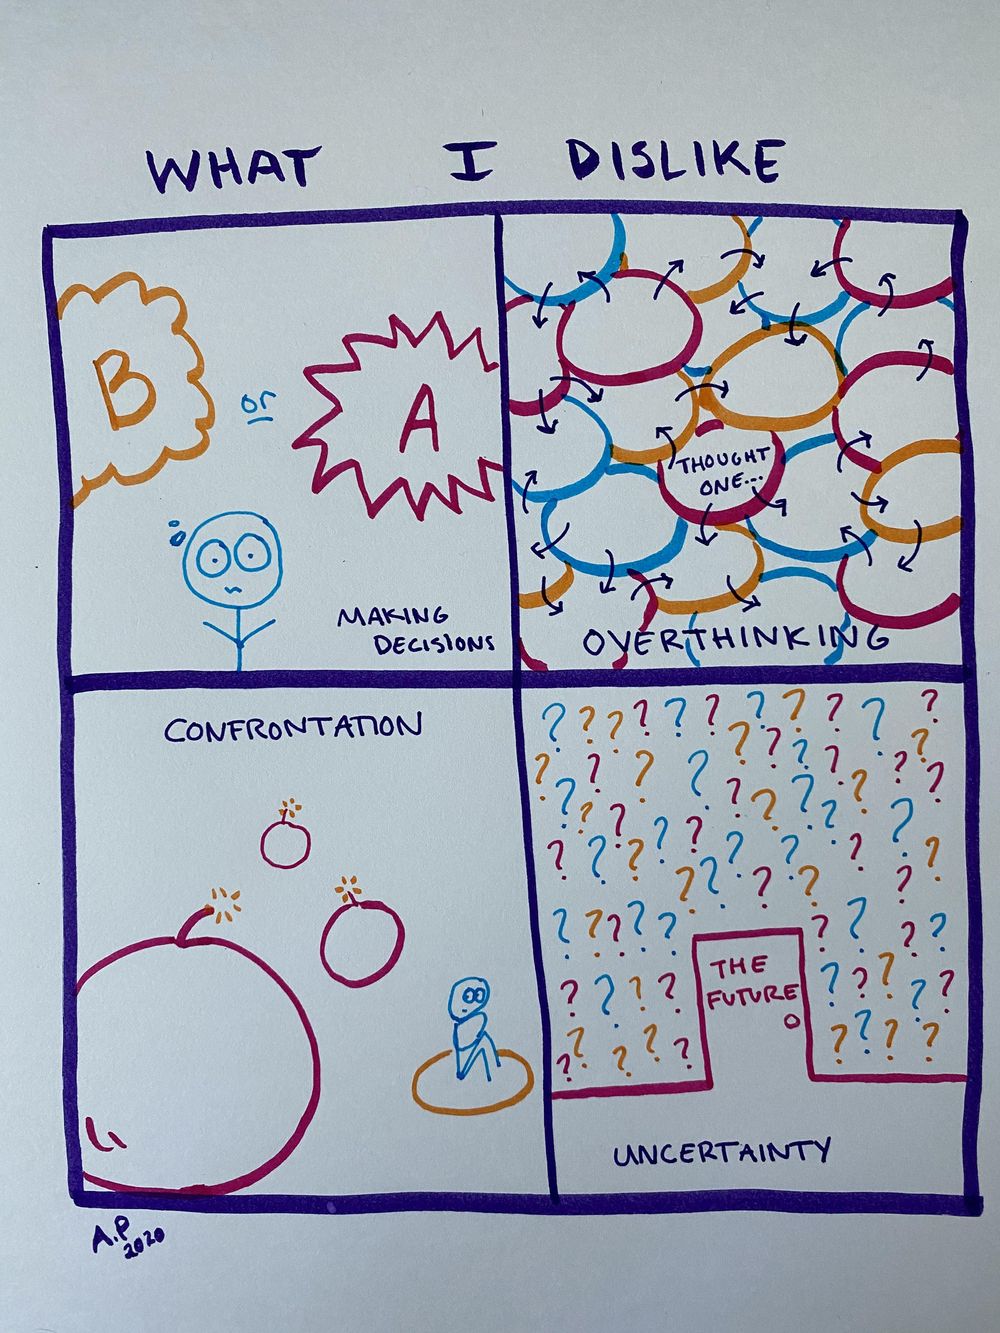 WHAT I DISLIKE
B or A
MAKING
DECISIONS
THOUGHT
ONE...
OVERTHINKING
CONFRONTATION
? ? ? ? ? ? ? ? ? ? ?
THE
FUTURE
UNCERTAINTY
A.P
2020